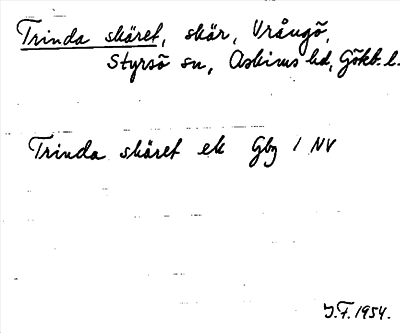 Trinda skäret, skär, Vrångö,
Styrsö sn, Askims hd, Götb. l.
Trinda skäret ek Gbg 1 NV
J.F. 1954.